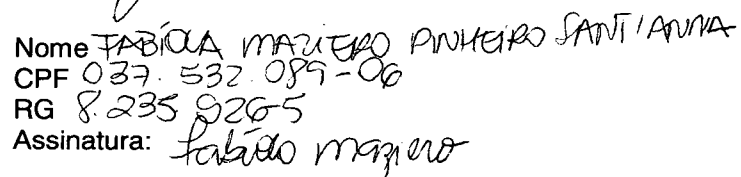 Nome FABÍOLA MAZIERO PINHEIRO SANT'ANNA
CPF 037.532.089-06
RG 8.235.926-5
Assinatura: Fabíola Maziero